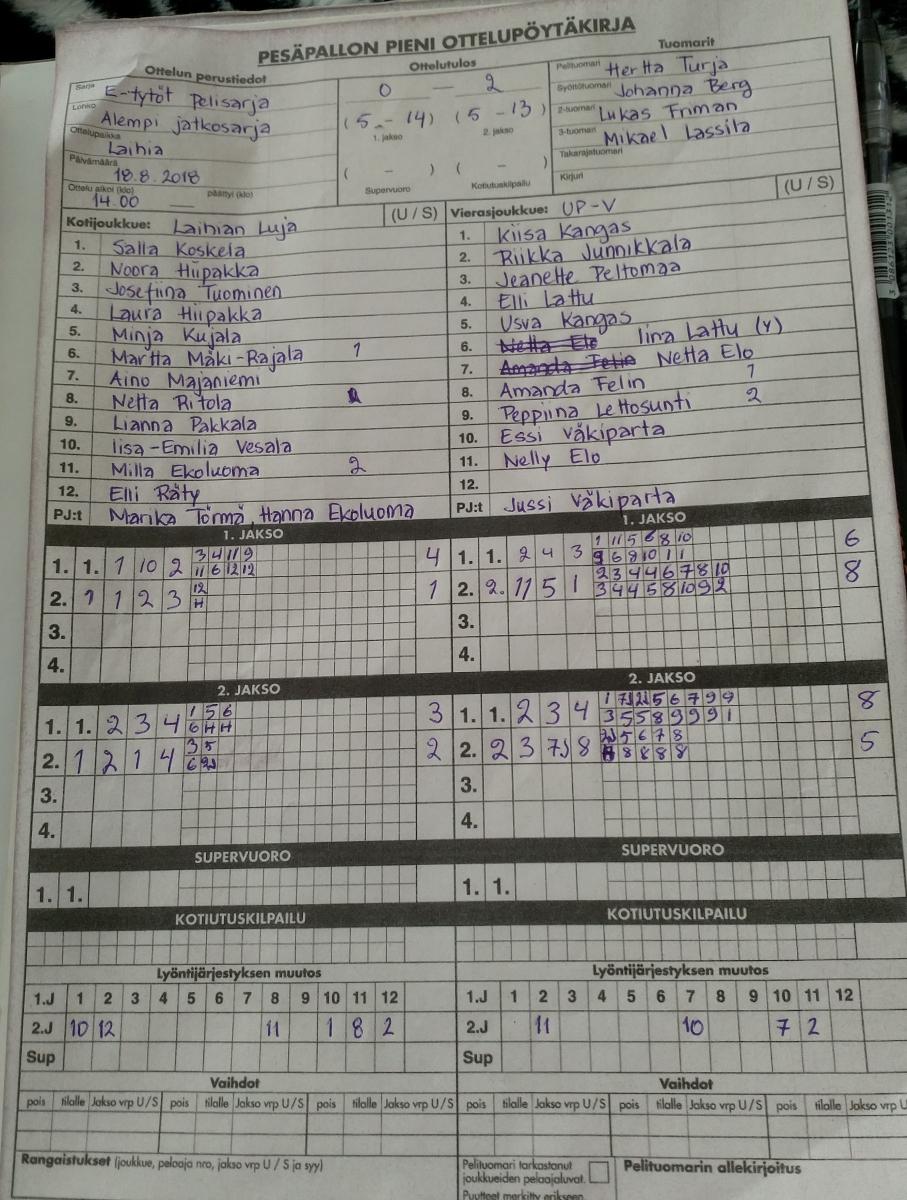 PESÄPALLON PIENI OTTELUPÖYTÄKIRJA
Ottelun perustiedot
Sarja E-tytöt pelisarja
Lohko Alempi jatkosarja
Ottelupaikka Laihia
Päivämäärä 18.8.2018
Ottelu alkoi (klo) 14.00 päättyi (klo)
Ottelutulos
0 - 2
(5 - 14) (5 - 13)
1. jakso 2. jakso
( - ) ( - )
Supervuoro Kotiutuskilpailu
Tuomarit
Pelituomari Hertta Turja
Syöttötuomari Johanna Berg
2-tuomari Lukas Friman
3-tuomari Mikael Lassila
Takarajatuomari
Kirjuri
Kotijoukkue: Laihian Luja (U / S)
1. Salla Koskela
2. Noora Hiipakka
3. Josefiina Tuominen
4. Laura Hiipakka
5. Minja Kujala
6. Martta Mäki-Rajala 1
7. Aino Majaniemi
8. Netta Ritola
9. Lianna Pakkala
10. Iisa-Emilia Vesala
11. Milla Ekoluoma 2
12. Elli Räty
PJ:t Marika Törmä, Hanna Ekoluoma
Vierasjoukkue: UP-V (U / S)
1. Kiisa Kangas
2. Riikka Junnikkala
3. Jeanette Peltomaa
4. Elli Lattu
5. Usva Kangas
6. Netta Elo Iina Lattu (Y)
7. Amanda Felin Netta Elo
8. Amanda Felin 1
9. Peppiina Lettosunti 2
10. Essi Väkiparta
11. Nelly Elo
12.
PJ:t Jussi Väkiparta
1. JAKSO
3 4 11 9
1. 1. 1 10 2 4
11 6 12 12
12
2. 1 1 2 3 1
H
3.
4.
1. JAKSO
1 11 5 6 8 10
1. 1. 2 4 3 6
9 6 8 10 1 1
2 3 4 4 6 7 8 10
2. 2. 11 5 1 8
3 4 4 5 8 10 9 2
3.
4.
2. JAKSO
1 5 6
1. 1. 2 3 4 3
6 H H
3 5
2. 1 2 1 4 2
6
3.
4.
2. JAKSO
5 6 7 9 9
1. 1. 2 3 4 8
3 5 5 8 9 9 9 1
5 6 7 8
2. 2 3 7J 8 5
8 8 8 8
3.
4.
SUPERVUORO
1. 1.
SUPERVUORO
1. 1.
KOTIUTUSKILPAILU
KOTIUTUSKILPAILU
Lyöntijärjestyksen muutos
1.J 1 2 3 4 5 6 7 8 9 10 11 12
2.J 10 12 11 1 8 2
Sup
Lyöntijärjestyksen muutos
1.J 1 2 3 4 5 6 7 8 9 10 11 12
2.J 11 10 7 2
Sup
Vaihdot
pois tilalle Jakso vrp U/S pois tilalle Jakso vrp U/S pois tilalle Jakso vrp U/S
Vaihdot
pois tilalle Jakso vrp U/S pois tilalle Jakso vrp U/S pois tilalle Jakso vrp U
Rangaistukset (joukkue, pelaaja nro, jakso vrp U / S ja syy)
Pelituomari tarkastanut
joukkueiden pelaajaluvat.
Puutteet merkitty erikseen
Pelituomarin allekirjoitus